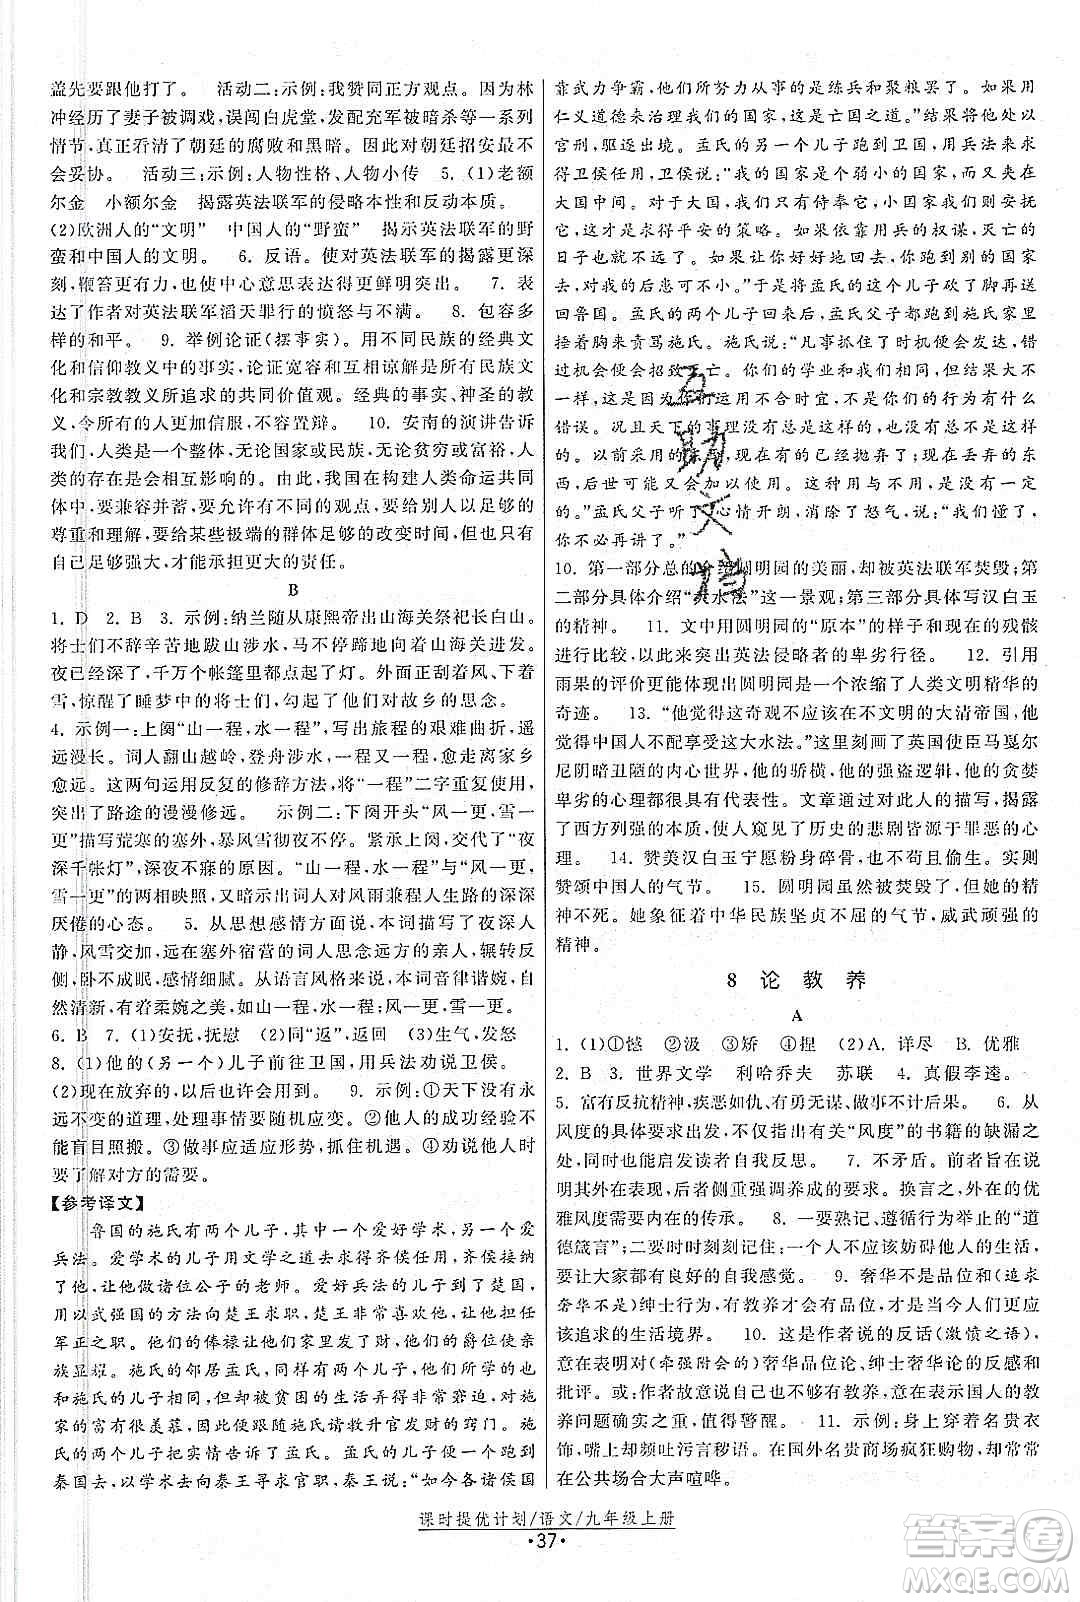 盖先要跟他打了。 活动二:示例:我赞同正方观点。因为林
冲经历了妻子被调戏,误闯白虎堂,发配充军被暗杀等一系列
情节,真正看清了朝廷的腐败和黑暗。因此对朝廷招安最不
会妥协。 活动三:示例:人物性格、人物小传 5. (1)老额
尔金 小额尔金 揭露英法联军的侵略本性和反动本质。
(2)欧洲人的“文明” 中国人的“野蛮” 揭示英法联军的野
蛮和中国人的文明。 6. 反语。使对英法联军的揭露更深
刻,鞭笞更有力,也使中心意思表达得更鲜明突出。 7. 表
达了作者对英法联军滔天罪行的愤怒与不满。 8. 包容多
样的和平。 9. 举例论证(摆事实)。用不同民族的经典文
化和信仰教义中的事实,论证宽容和互相谅解是不同民族文
化和宗教教义所追求的共同价值观。经典的事实、神圣的教
义,令所有的人更加信服,不容置辩。 10. 安南的演讲告诉
我们,人类是一个整体,无论强大与弱小,无论贫穷或富裕,人
类的存在是会相互影响的。因此,我国在构建人类命运共同
体中,要兼容并蓄;要允许有不同的观点,要给予对方足够的
尊重和理解;要给某些极端的群体足够的改变时间;要让自
己足够强大,有能力承担更大的责任。
B
1. D 2. B 3. 示例:纳兰随从康熙帝出山海关祭祀长白山。
将士们不辞辛苦地跋山涉水,马不停蹄地向着山海关进发。
夜已经深了,千万个帐篷里都点起了灯。外面正刮着风、下着
雪,惊醒了睡梦中的将士们,勾起了他们对故乡的思念。
4. 示例一:上阕“山一程,水一程”,写出旅程的艰难曲折,遥
远漫长。词人翻山越岭,登舟涉水,一程又一程,愈走离家乡
愈远。这两句运用反复的修辞方法,将“一程”二字重复使用,
突出了路途的漫漫修远。 示例二:下阕“风一更,雪一
更”描写荒寒的塞外,暴风雪彻夜不停。紧承上阕,交代了“夜
深千帐灯”,深夜不寐的原因。“山一程,水一程”与“风一更,
雪一更”的两相映照,又暗示出词人对风雨兼程人生路的深深
厌倦的心态。 5. 从思想感情方面说,本词描写了夜深人
静,风雪交加,远在塞外宿营的词人思念远方的亲人,辗转反
侧,卧不成眠,感情细腻。从语言风格来说,本词音律谐婉,自
然清新,有着柔婉之美,如山一程,水一程;风一更,雪一更。
6. B 7. (1)安抚,抚慰 (2)同“返”,返回 (3)生气,发怒
8. (1)他的(另一个)儿子前往卫国,用兵法劝说卫侯。
(2)现在放弃的,以后也许会用到。 9. 示例:①天下没有永
远不变的道理,处理事情要随机应变。②他人的成功经验不
能盲目照搬。③做事应适应形势,抓住机遇。④劝说他人时
要了解对方的需要。
【参考译文】
鲁国的施氏有两个儿子,其中一个爱好学术,另一个爱
兵法。爱学术的儿子用文学之道去求得齐侯任用,齐侯接纳
了他,让他做诸位公子的老师。爱好兵法的儿子到了楚国,
用以武强国的方法向楚王求职,楚王非常喜欢他,让他担任
军正之职。他们的俸禄让家人富有起来,他们的爵位使亲
族显耀。施氏的邻居孟氏,同样有两个儿子,他们所学的也
和施氏的儿子相同,却被贫困的生活弄得非常窘迫。对施
家的富有很羡慕,便跟随施氏请教升官发财的窍门。施
氏的两个儿子把实情告诉了孟氏。孟氏的儿子便一个跑到
秦国去,以学术去向秦王寻求官职,秦王说:“如今各诸侯国
靠武力争霸,他们所努力从事的是练兵和聚粮罢了。如果用
仁义道德来治理我们的国家,这是亡国之道。”结果将他处以
宫刑,驱逐出境。孟氏的另一个儿子跑到卫国,用兵法劝说
卫侯以求得官职,卫侯说:“我的国家是个弱小的国家,而且夹在
大国中间。对于大国,我们得侍奉它,小的国家我们要安抚
它,这才是求得平安的策略。如果依靠用兵的权谋,灭亡的
日子也就可以想见了。如果让此人好好地回去,到了别的国家
去,将对我的后患可不小。”于是将孟氏的这个儿子砍断脚送
回鲁国。孟氏的两个儿子回来后,孟氏父子跑到施氏家里
捶着胸来责骂施氏。施氏说:“凡事抓住了时机便会发达,错
过机会便会招致灭亡。你们的学业和我们相同,但结果大不
一样,这是因为你们运用不合时宜,不是你们的行为有什么
错误。况且天下的事理没有总是这样的,也没有总不是这样
的。以前采用的东西,现在有的已经抛弃了;现在丢弃的东
西,后世可能又会加以使用。这种用与不用,是没有一定
的。”孟氏父子听了,心情开朗,消除了怒气,说:“我明白了,
你不必再讲了。”
10. 第一部分总的介绍圆明园的美丽,却被英法联军焚毁;第
二部分具体介绍“大水法”这一景观;第三部分具体写汉白玉
的精神。 11. 文中用圆明园的“原本”的样子和现在的残骸
进行比较,以此来突出英法侵略者的卑劣行径。 12. 引用
雨果的评价更能体现出圆明园是一个浓缩了人类文明精华的
奇迹。 13. “他觉得这奇观不应该在不文明的大清帝国,他
觉得中国人不配享受这大水法。”这里刻画了英国使臣马戛尔
尼阴暗丑陋的内心世界,他的骄横,他的强盗逻辑,他的贪婪
卑劣的心理都很具有代表性。文章通过对此人的描写,揭露
了西方列强的本质,使人窥见了历史的悲剧皆源于罪恶的心
理。 14. 赞美汉白玉宁愿粉身碎骨,也不苟且偷生。实则
赞颂中国人的气节。 15. 圆明园虽然被焚毁了,但她的精
神不死。她象征着中华民族坚贞不屈的气节,威武顽强的
精神。
8 论教养
A
1. (1)①憾 ②汲 ③矫 ④捏 (2)A. 详尽 B. 优雅
2. B 3. 世界文学 利哈乔夫 苏联 4. 真假李逵。
5. 富有反抗精神,疾恶如仇,有勇无谋、做事不计后果。 6. 从
风度的具体要求出发,不仅指出有关“风度”的书籍的缺漏之
处,同时也能启发读者去思考。 7. 不矛盾。前者旨在说
明其外在表现,后者侧重强调养成的要求。换言之,外在的优
雅风度需要内在的传承。 8. 一要熟记、遵循行为举止的“道
德箴言”;二要时时刻刻记住:一个人不应该妨碍他人的生活,
要让大家都有良好的自我感觉。 9. 奢华不是品位和(追求
奢华不是)绅士行为,有教养才会有品位,这才是今天人们更应
该追求的生活境界。 10. 这是作者说的反话(激愤之语),
意在表明对(牵强附会的)奢华品位论、绅士奢华论的反感和
批评。或:作者故意说我们也有教养,意在表示国人的教
养问题确实到了严重之重,值得警醒。 11. 示例:身上穿着名贵衣
饰,嘴上却频吐污言秽语。在国外名贵商场疯狂购物,却常常
在公共场合大声喧哗。
课时提优计划/语文/九年级上册
·37·
互助文档
答案圈
MXQE.COM